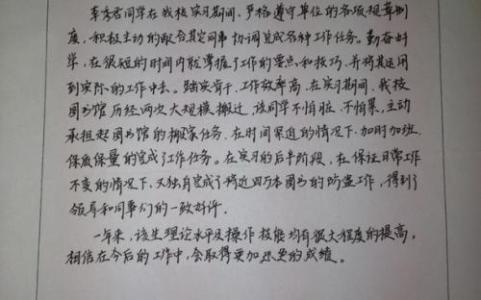 李秀君同学在我校实习期间、严格遵守单位的各项规章制
度，积极主动的配合其它同事协调完成各种工作任务。勤奋好
学，在很短的时间内就掌握了工作的要点和技巧，并将其运用
到实际的工作中去。踏实肯干，工作效率高。在实习期间，我校
图书馆历经两次大规模搬迁，该同学不怕脏、不怕累，主动
承担起图书馆的搬家任务，在时间紧迫的情况下，加时加班，
保质保量的完成了工作任务。在实习的后半阶段，在保证日常工作
不变的情况下，又独自完成了将近四万本图书的防盗工作，得到了
领导和同事们的一致好评。
一年来，该生理论水平及操作技能均有很大程度的提高，
相信在今后的工作中，会取得更加的成绩。